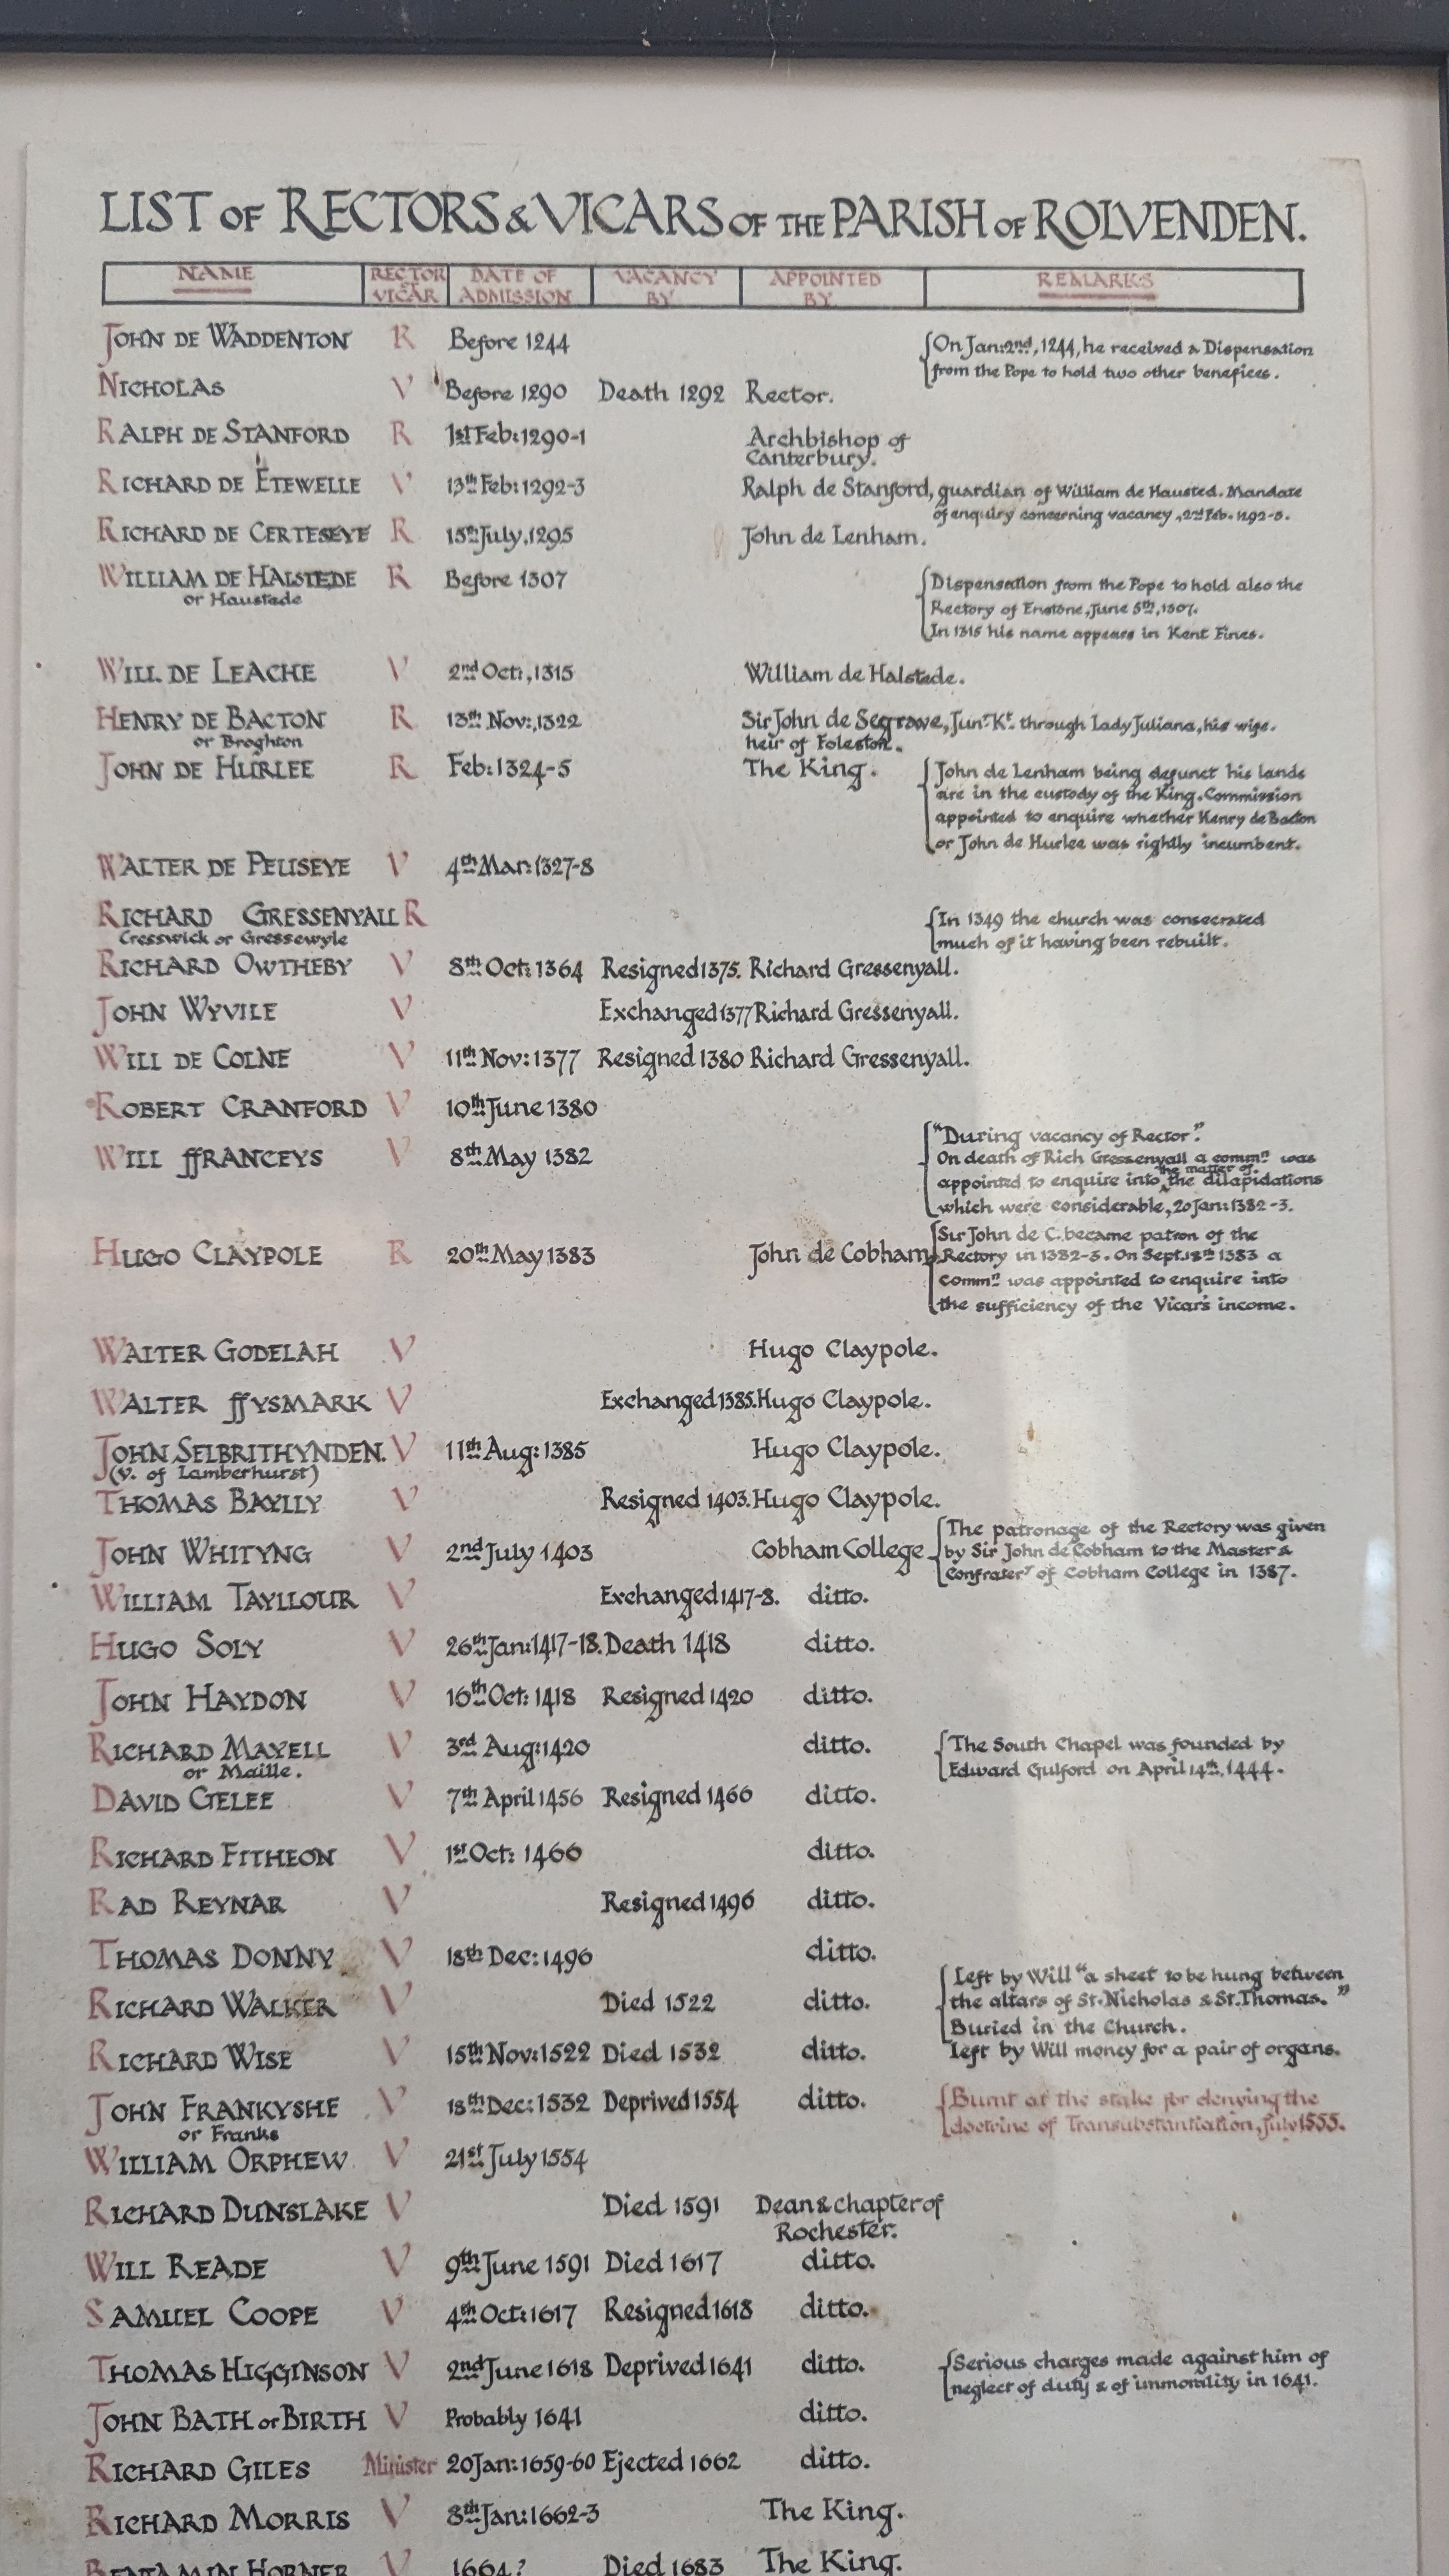 LIST OF RECTORS & VICARS OF THE PARISH OF ROLVENDEN.
NAME RECTOR OR VICAR DATE OF ADMISSION VACANCY BY APPOINTED BY REMARKS
JOHN DE WADDENTON R Before 1244 On Jan: 2nd, 1244, he received a Dispensation
from the Pope to hold two other benefices.
NICHOLAS V Before 1290 Death 1292 Rector.
RALPH DE STANFORD R 1st Feb: 1290-1 Archbishop of
Canterbury.
RICHARD DE ETEWELLE V 13th Feb: 1292-3 Ralph de Stanford, guardian of William de Hausted. Mandate
of enquiry concerning vacancy, 2nd Feb. 1292-3.
RICHARD DE CERTESEYE R 15th July, 1295 John de Lenham.
WILLIAM DE HALSTEDE R Before 1307 Dispensation from the Pope to hold also the
or Haustede
Rectory of Enstone, June 5th, 1307.
In 1315 his name appears in Kent Fines.
WILL DE LEACHE V 2nd Oct:, 1315 William de Halstede.
HENRY DE BACTON R 13th Nov:, 1322 Sir John de Segrave, Junr. Kt. through Lady Juliana, his wife.
or Broghton heir of Foleston.
JOHN DE HURLEE R Feb: 1324-5 The King. John de Lenham being defunct his lands
are in the custody of the King. Commission
appointed to enquire whether Henry de Bacton
or John de Hurlee was rightly incumbent.
WALTER DE PELISEYE V 4th Mar: 1327-8
RICHARD GRESSENYALL R In 1349 the church was consecrated
Cresswick or Gressewyle much of it having been rebuilt.
RICHARD OWTHEBY V 8th Oct: 1364 Resigned 1375. Richard Gressenyall.
JOHN WYVILE V Exchanged 1377 Richard Gressenyall.
WILL DE COLNE V 11th Nov: 1377 Resigned 1380 Richard Gressenyall.
ROBERT CRANFORD V 10th June 1380
WILL ffRANCEYS V 8th May 1382 "During vacancy of Rector".
On death of Rich Gressenyall a commn was
appointed to enquire into the matter of the dilapidations
which were considerable, 20 Jan: 1382-3.
HUGO CLAYPOLE R 20th May 1383 John de Cobham Sir John de C. became patron of the
Rectory in 1382-3. On Sept. 18th 1383 a
commn was appointed to enquire into
the sufficiency of the Vicar's income.
WALTER GODELAH V Hugo Claypole.
WALTER ffYSMARK V Exchanged 1385. Hugo Claypole.
JOHN SELBRITHYNDEN. V 11th Aug: 1385 Hugo Claypole.
(V. of Lamberhurst)
THOMAS BAYLLY V Resigned 1403. Hugo Claypole.
JOHN WHITYNG V 2nd July 1403 Cobham College The patronage of the Rectory was given
by Sir John de Cobham to the Master &
Confraters of Cobham College in 1387.
WILLIAM TAYLLOUR V Exchanged 1417-8. ditto.
HUGO SOLY V 26th Jan: 1417-18. Death 1418 ditto.
JOHN HAYDON V 16th Oct: 1418 Resigned 1420 ditto.
RICHARD MAYELL V 3rd Aug: 1420 ditto. The South Chapel was founded by
or Maille. Edward Gulford on April 14th, 1444.
DAVID GELEE V 7th April 1456 Resigned 1466 ditto.
RICHARD FITHEON V 1st Oct: 1466 ditto.
RAD REYNAR V Resigned 1496 ditto.
THOMAS DONNY V 18th Dec: 1496 ditto.
RICHARD WALKER V Died 1522 ditto. Left by Will "a sheet to be hung between
the altars of St. Nicholas & St. Thomas."
Buried in the Church.
RICHARD WISE V 15th Nov: 1522 Died 1532 ditto. Left by Will money for a pair of organs.
JOHN FRANKYSHE V 18th Dec: 1532 Deprived 1554 ditto. Burnt at the stake for denying the
or Franks doctrine of Transubstantiation, July 1555.
WILLIAM ORPHEW V 21st July 1554
RICHARD DUNSLAKE V Died 1591 Dean & chapter of
Rochester.
WILL READE V 9th June 1591 Died 1617 ditto.
SAMUEL COOPE V 4th Oct: 1617 Resigned 1618 ditto.
THOMAS HIGGINSON V 2nd June 1618 Deprived 1641 ditto. Serious charges made against him of
neglect of duty & of immorality in 1641.
JOHN BATH or BIRTH V Probably 1641 ditto.
RICHARD GILES Minister 20 Jan: 1659-60 Ejected 1662 ditto.
RICHARD MORRIS V 8th Jan: 1662-3 The King.
BENJAMIN HORNER V 1664? Died 1683 The King.